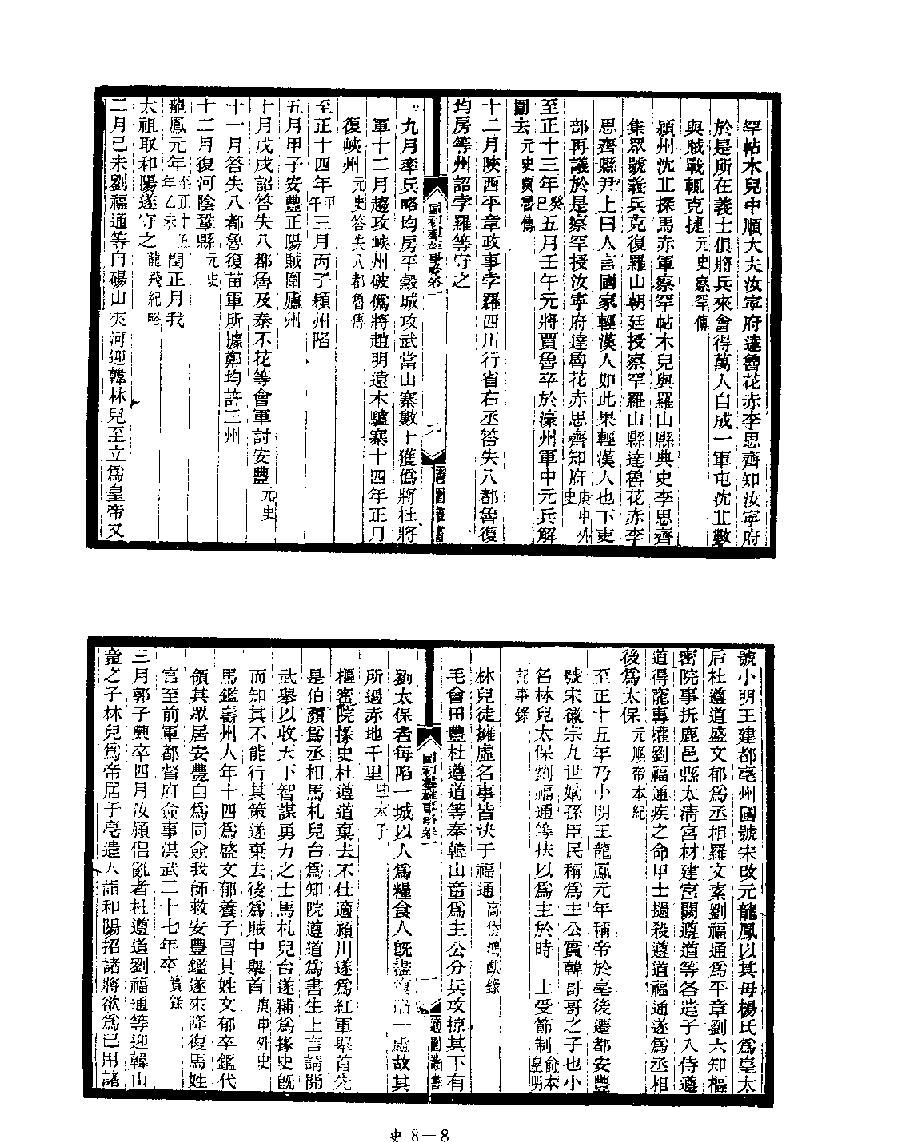 罕帖木兒中順大夫汝寧府達魯花赤李思齊知汝寧府
於是所在義士俱將兵來會得萬人自成一軍屯沈丘數
與賊戰輒克捷元史察罕傳
潁州沈丘探馬赤軍察罕帖木兒與羅山縣典史李思齊
集眾號義兵克復羅山朝廷授察罕羅山縣達魯花赤李
思齊縣尹上曰人言國家輕漢人如此果輕漢人也下吏
部再議於是察罕授汝寧府達魯花赤思齊知府庚申外史
至正十三年癸巳五月壬午元將賈魯卒於濠州軍中元兵解
圍去元史賈魯傳
十二月陝西平章政事孛羅四川行省右丞答失八都魯復
均房等州詔孛羅等守之
九月率兵略均房平穀城攻武當山寨數十獲偽將杜將
軍十二月趨攻峽州破偽將趙明遠木驢寨十四年正月
復峽州元史答失八都魯傳
至正十四年甲午三月丙子潁州陷
五月甲子安豐正陽賊圍廬州
十月戊戌詔答失八都魯及泰不花等會軍討安豐元史
十一月答失八都魯復苗軍所據鄭均許三州
十二月復河陰鞏縣元史
龍鳳元年至正十五年乙未閏正月我
太祖取和陽遂守之龍飛紀略
二月己未劉福通等自碭山夾河迎韓林兒至立為皇帝又
號小明王建都亳州國號宋改元龍鳳以其母楊氏為皇太
后杜遵道盛文郁為丞相羅文素劉福通為平章劉六知樞
密院事拆鹿邑縣太清宮材建宮闕遵道等各遣子入侍遵
道得寵專權劉福通疾之命甲士撾殺遵道福通遂為丞相
後為太保元順帝本紀
至正十五年乃小明王龍鳳元年稱帝於亳後遷都安豐
號宋徽宗九世嫡孫臣民稱為主公實韓哥哥之子也小
名林兒太保劉福通等扶以為主於時 上受節制俞本皇明
記事錄
林兒徒擁虛名事皆決于福通高岱鴻猷錄
毛會田豐杜遵道等奉韓山童為主公分兵攻掠其下有
劉太保者每陷一城以人為糧食人既盡復 一處故其
所過赤地千里草木子
樞密院掾史杜遵道棄去不仕適潁川遂為紅軍舉首先
是伯顏為丞相馬札兒台為知院遵道為書生上言請開
武舉以收天下智謀勇力之士馬札兒台遂補為掾史既
而知其不能行其策遂棄去後為賊中舉首庚申外史
馬鑑壽州人年十四為盛文郁養子冒其姓文郁卒鑑代
領其眾居安豐自為同僉我師救安豐鑑遂來降復馬姓
官至前軍都督府僉事洪武二十七年卒實錄
三月郭子興卒四月汝潁倡亂者杜遵道劉福通等迎韓山
童之子林兒為帝居于亳遣人詣和陽招諸將欲為己用諸
史 8—8